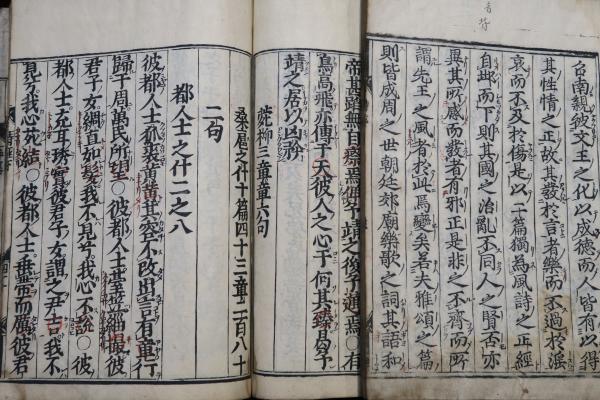 召南親被文王之化以成德而人皆有以得
其性情之正故其發於言者樂而不過於淫
哀而不及於傷是以二篇獨為風詩之正經
自邶而下則其國之治亂不同人之賢否亦
異其所感而發者有邪正是非之不齊而所
謂先王之風者於此焉變矣若夫雅頌之篇
則皆成周之世朝廷郊廟樂歌之詞其語和
帝甚蹈無自瘵焉俾予靖之後予邁焉○有
鳥高飛亦傅于天彼人之心于何其臻曷予
靖之居以凶矜
菀柳三章章六句
桑扈之什十篇四十三章二百八十
二句
都人士之什二之八
彼都人士狐裘黃黃其容不改出言有章行
歸于周萬民所望○彼都人士臺笠緇撮彼
君子女綢直如髮我不見兮我心不說○彼
都人士充耳琇實彼君子女謂之尹吉我不
見兮我心苑結○彼都人士垂帶而厲彼君